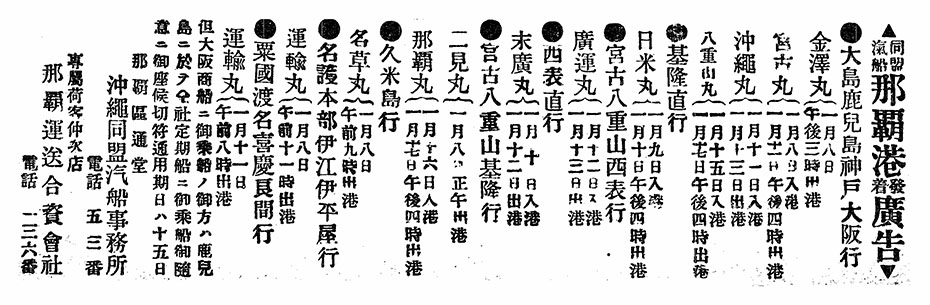 ▲同盟汽船那覇港發着廣告▼
●大島鹿兒島神戸大阪行
金澤丸 一月八日午後三時出港
宮古丸 一月八日入港
一月十一日出港
沖繩丸 一月十一日入港
一月十三日出港
八重山丸 一月十五日入港
一月十七日午後四時出港
●基隆直行
日米丸 一月九日入港
一月十日午後四時出港
●宮古八重山西表行
廣運丸 一月十二日入港
一月十三日出港
●西表直行
末廣丸 一月十日入港
一月十二日出港
●宮古八重山基隆行
二見丸 一月八日正午出港
那覇丸 一月十六日入港
一月十七日午後四時出港
●久米島行
名草丸 一月八日
午前九時出港
●名護本部伊江伊平屋行
運輸丸 一月八日
午前十一時出港
●粟國渡名喜慶良間行
運輸丸 一月十一日
午前八時出港
但大阪商船ニ御乘船ノ御方ハ鹿兒
島ニ於テ仝社定期船ニ御乘船御隨
意ニ御座候切符通用期日ハ十五日
那覇區通堂
沖繩同盟汽船事務所
電話 五三番
專屬荷客仲次店
那覇運送合資會社
電話 一三六番